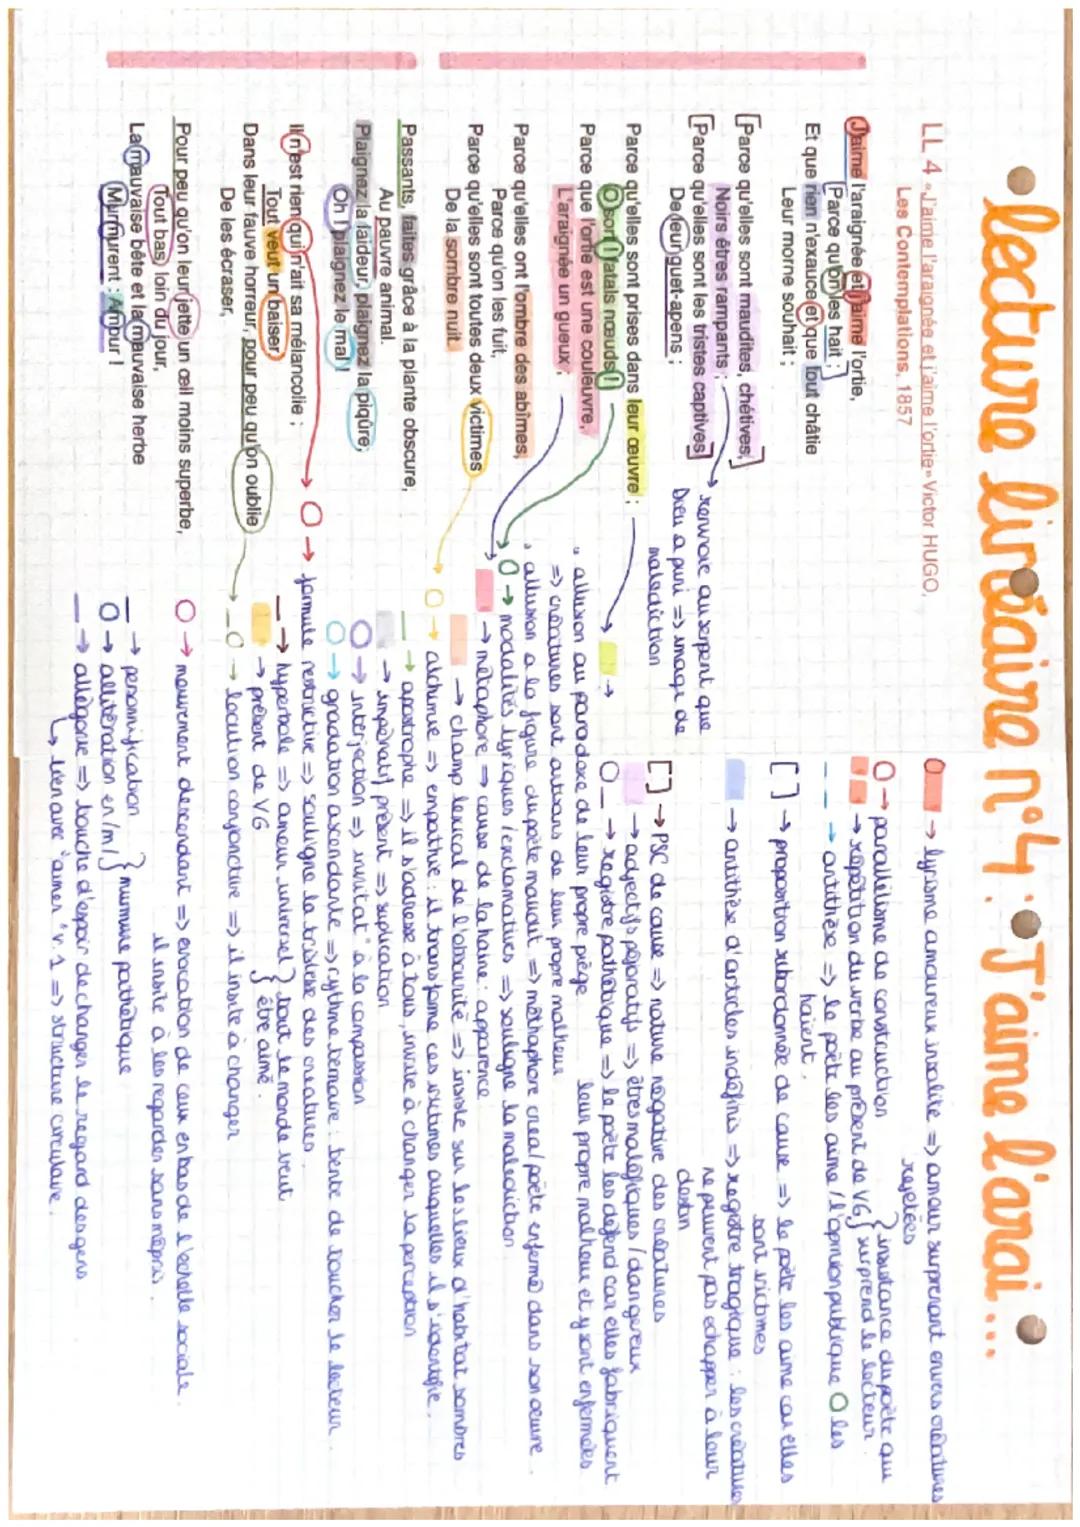 lecture linéaire n°4: J'aime l'arai...
LL 4 «J'aime l'araignée et j'aime l'ortie» Victor HUGO,
Les Contemplations, 1857
J'aime l'araignée et j'aime l'ortie,
[Parce qu'on les hait ;]
Et que rien n'exauce et que tout châtie
Leur morne souhait ;
[Parce qu'elles sont maudites, chétives,]
Noirs êtres rampants ;
[Parce qu'elles sont les tristes captives]
De leur guet-apens ;
Parce qu'elles sont prises dans leur œuvre ;
O sort ! fatals nœuds !
Parce que l'ortie est une couleuvre,
L'araignée un gueux ;
Parce qu'elles ont l'ombre des abîmes,
Parce qu'on les fuit,
Parce qu'elles sont toutes deux victimes
De la sombre nuit.
Passants, faites grâce à la plante obscure,
Au pauvre animal.
Plaignez la laideur, plaignez la piqûre,
Oh ! plaignez le mal !
Il n'est rien qui n'ait sa mélancolie ;
Tout veut un baiser.
Dans leur fauve horreur, pour peu qu'on oublie
De les écraser,
Pour peu qu'on leur jette un œil moins superbe,
Tout bas, loin du jour,
La mauvaise bête et la mauvaise herbe
Murmurent : Amour !
→ renvoie au serpent que
Dieu a puni => image de
malediction
→ lyrisme amoureux insolite => amour surprenant envers créatures
rejetées
O → parallélisme de construction
→ répétition du verbe au présent de VG } insistance du poète qui surprend le lecteur.
→ antithèse => le poète les aime / l'opinion publique O les
haient.
[] → proposition subordonnée de cause => le poète les aime car elles
sont victimes
→ antithèse d'articles indéfinis => registre tragique : les créatures
ne peuvent pas échapper à leur
destin
[] → PSC de cause => nature négative des créatures
→ adjectifs péjoratifs => êtres maléfiques / dangereux
O_ → registre pathétique => le poète les défend car elles fabriquent
leur propre malheur et y sont enfermées
→ • allusion au paradoxe de leur propre piège
=> créatures sont artisans de leur propre malheur
• allusion a la figure du poète maudit => métaphore crea/poète enfermé dans son oeuvre.
O → modalités lyriques / exclamatives => souligne la malediction
→ métaphore => cause de la haine : apparence
→ champ lexical de l'obscurité => insiste sur les lieux d'habitat sombres
O → => empathie : il transforme ces victimes auxquelles il s'identifie.
→ apostrophe => il s'adresse à tous, invite à changer sa perception
→ impératif présent => suplication
O → interjection => invitat° à la compassion
O → gradation ascendante => rythme ternaire : tente de toucher le lecteur.
O → formule restrictive => souligne la tristesse des creatures
→ hyperbole => amour universel } tout le monde veut
→ présent de VG } être aimé.
_O → locution conjonctive => il insite à changer
O → mouvement descendant => evocation de ceux en bas de l'échelle sociale.
il insite à les regarder sans mépris.
→ personnification
O → allitération en /m/ } murmure pathétique
→ allégorie => touche d'espoir de changer le regard des gens
↳ lien avec "aimer" v.1 => structure circulaire.